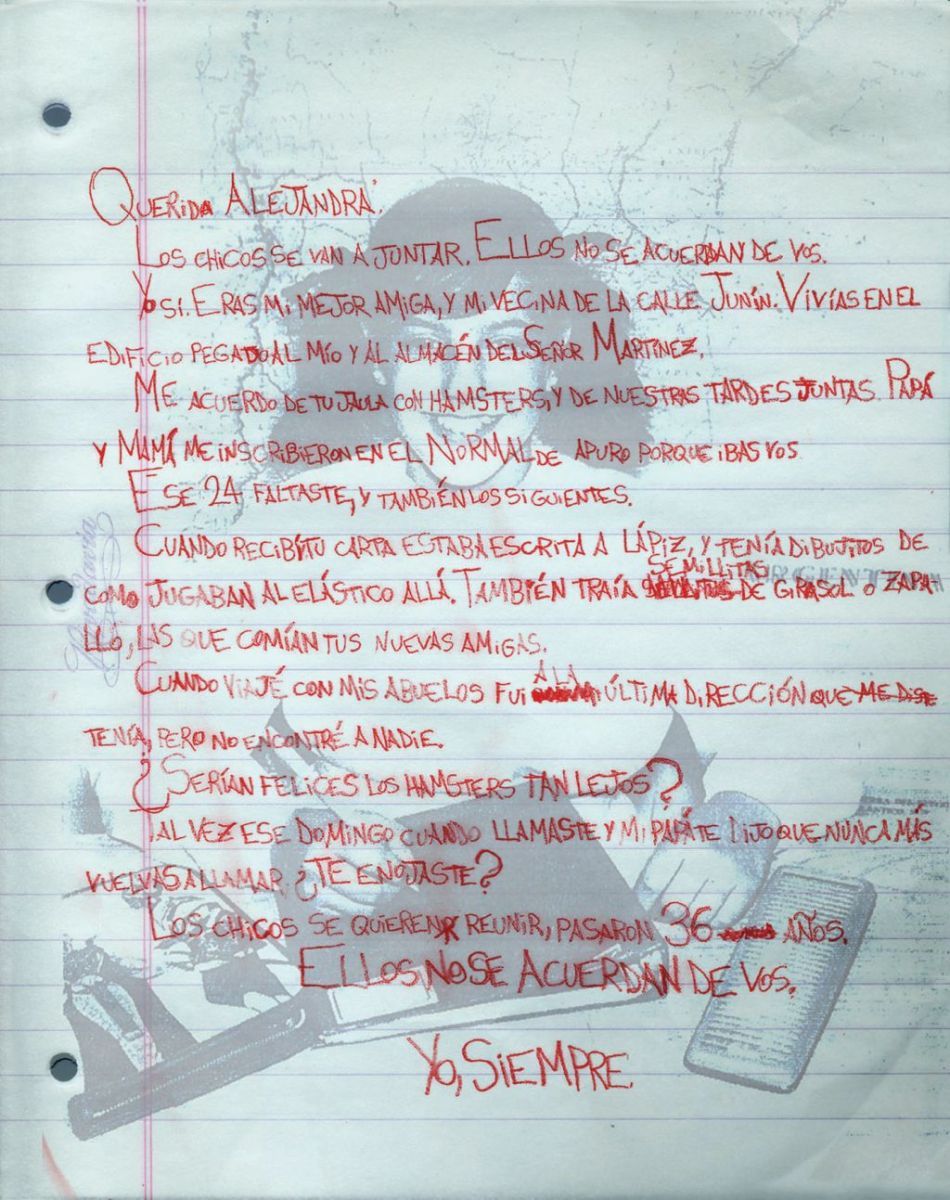 QUERIDA ALEJANDRA:
LOS CHICOS SE VAN A JUNTAR. ELLOS NO SE ACUERDAN DE VOS.
YO SI. ERAS MI MEJOR AMIGA, Y MI VECINA DE LA CALLE JUNÍN. VIVÍAS EN EL
EDIFICIO PEGADO AL MÍO Y AL ALMACÉN DEL SEÑOR MARTINEZ.
ME ACUERDO DE TU JAULA CON HAMSTERS, Y DE NUESTRAS TARDES JUNTAS. PAPÁ
Y MAMÁ ME INSCRIBIERON EN EL NORMAL DE APURO PORQUE IBAS VOS
ESE 24 FALTASTE, Y TAMBIÉN LOS SIGUIENTES.
CUANDO RECIBÍ TU CARTA ESTABA ESCRITA A LÁPIZ, Y TENÍA DIBUJITOS DE
COMO JUGABAN AL ELÁSTICO ALLÁ. TAMBIÉN TRAÍA SEMILLITAS DE GIRASOL O ZAPA-
LLO, LAS QUE COMÍAN TUS NUEVAS AMIGAS.
CUANDO VIAJÉ CON MIS ABUELOS FUI A LA ÚLTIMA DIRECCIÓN QUE ME DISTE
TENÍA, PERO NO ENCONTRÉ A NADIE.
¿SERÍAN FELICES LOS HAMSTERS TAN LEJOS?
TAL VEZ ESE DOMINGO CUANDO LLAMASTE Y MI PAPÁ TE DIJO QUE NUNCA MÁS
VUELVAS A LLAMAR ¿TE ENOJASTE?
LOS CHICOS SE QUIEREN REUNIR, PASARON 36 AÑOS.
ELLOS NO SE ACUERDAN DE VOS.
YO, SIEMPRE.